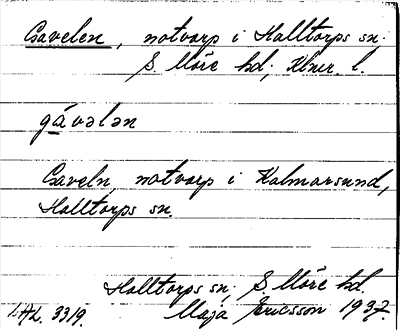 Gaveln, notvarp i Halltorps sn.
S. Möre hd; Klmr. l.
gávələn
Gaveln, notvarp i Kalmarsund,
Halltorps sn.
Halltorps sn, S Möre hd.
LAL. 3319. Maja Ericsson 1937.